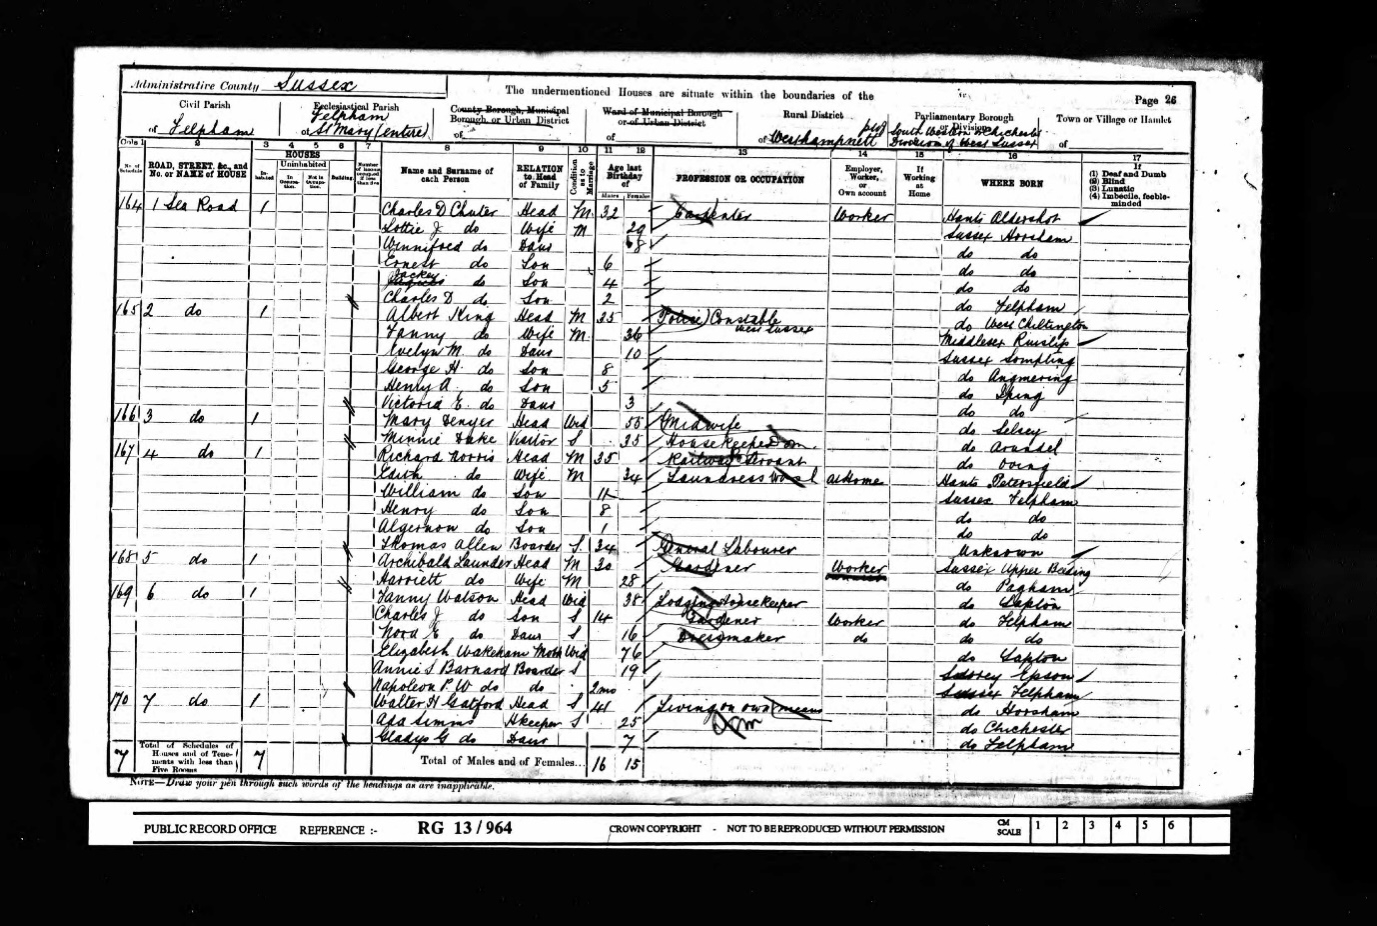 Administrative County Sussex
The undermentioned Houses are situate within the boundaries of the
Page 26
Civil Parish
of Felpham
Ecclesiastical Parish
Felpham
of St Mary (entire)
County Borough, Municipal
Borough, or Urban District
of
Ward of Municipal Borough
or of Urban District
of
Rural District
of Westhampnett
Parliamentary Borough
or Division
South Western or Chichester
Division of West Sussex
Town or Village or Hamlet
of
Cols 1 2 3 4 5 6 7 8 9 10 11 12 13 14 15 16 17
No. of Schedule
ROAD, STREET, &c., and No. or NAME of HOUSE
HOUSES
Inhabited
Uninhabited
In Occupation.
Not in Occupation.
Building
Number of rooms occupied if less than five
Name and Surname of each Person
RELATION to Head of Family
Condition as to Marriage
Age last Birthday of
Males Females
PROFESSION OR OCCUPATION
Employer, Worker, or Own account
If Working at Home
WHERE BORN
If
(1) Deaf and Dumb
(2) Blind
(3) Lunatic
(4) Imbecile, feeble-minded
164 1 Sea Road 1 Charles D Chuter Head M. 32 Carpenter Worker Hants Aldershot
Lottie J do Wife M 29 Sussex Horsham
Winnifred do Daur 8 do do
Ernest do Son 6 do do
Jackey do Son 4 do do
Charles D do Son 2 do Felpham
165 2 do 1 Albert King Head M 35 Police Constable West Sussex do West Chiltington
Fanny do Wife M. 36 Middlesex Ruislip
Evelyn M. do Daur 10 Sussex Sompting
George H do Son 8 do Angmering
Henry A. do Son 5 do Iping
Victoria E. do Daur 3 do do
166 3 do 1 Mary Denyer Head Wid 55 Midwife do Selsey
Minnie Duke Visitor S 35 Housekeeper Dom. do Arundel
167 4 do 1 Richard Norris Head M 35 Railway Servant do Oving
Edith do Wife M 34 Laundress At Home Hants Petersfield
William do Son 11 Sussex Felpham
Henry do Son 8 do do
Algernon do Son 1 do do
Thomas Allen Boarder S. 34 General Labourer Unknown
168 5 do 1 Archibald Launder Head M 30 Gardener Worker Sussex Upper Beeding
Harriett do Wife M 28 do Pagham
169 6 do 1 Fanny Watson Head Wid 38 Lodging Housekeeper do Yapton
Charles J do Son S 14 Gardener Worker do Felpham
Nora E do Daur S 16 Dressmaker do do do
Elizabeth Wakeham Moth Wid 76 do Yapton
Annie S Barnard Boarder S 19 Surrey Epsom
Napoleon P. W do do 2mo Sussex Felpham
170 7 do 1 Walter H Gatford Head S 41 Living on own means do Horsham
Ada Simms Hkeeper S 25 Dom do Chichester
Gladys G do Daur 7 do Felpham
7 Total of Schedules of Houses and of Tenements with less than Five Rooms 7 Total of Males and of Females... 16 15
NOTE—Draw your pen through such words of the headings as are inapplicable.
PUBLIC RECORD OFFICE REFERENCE :- RG 13/964 CROWN COPYRIGHT - NOT TO BE REPRODUCED WITHOUT PERMISSION CM SCALE 1 2 3 4 5 6